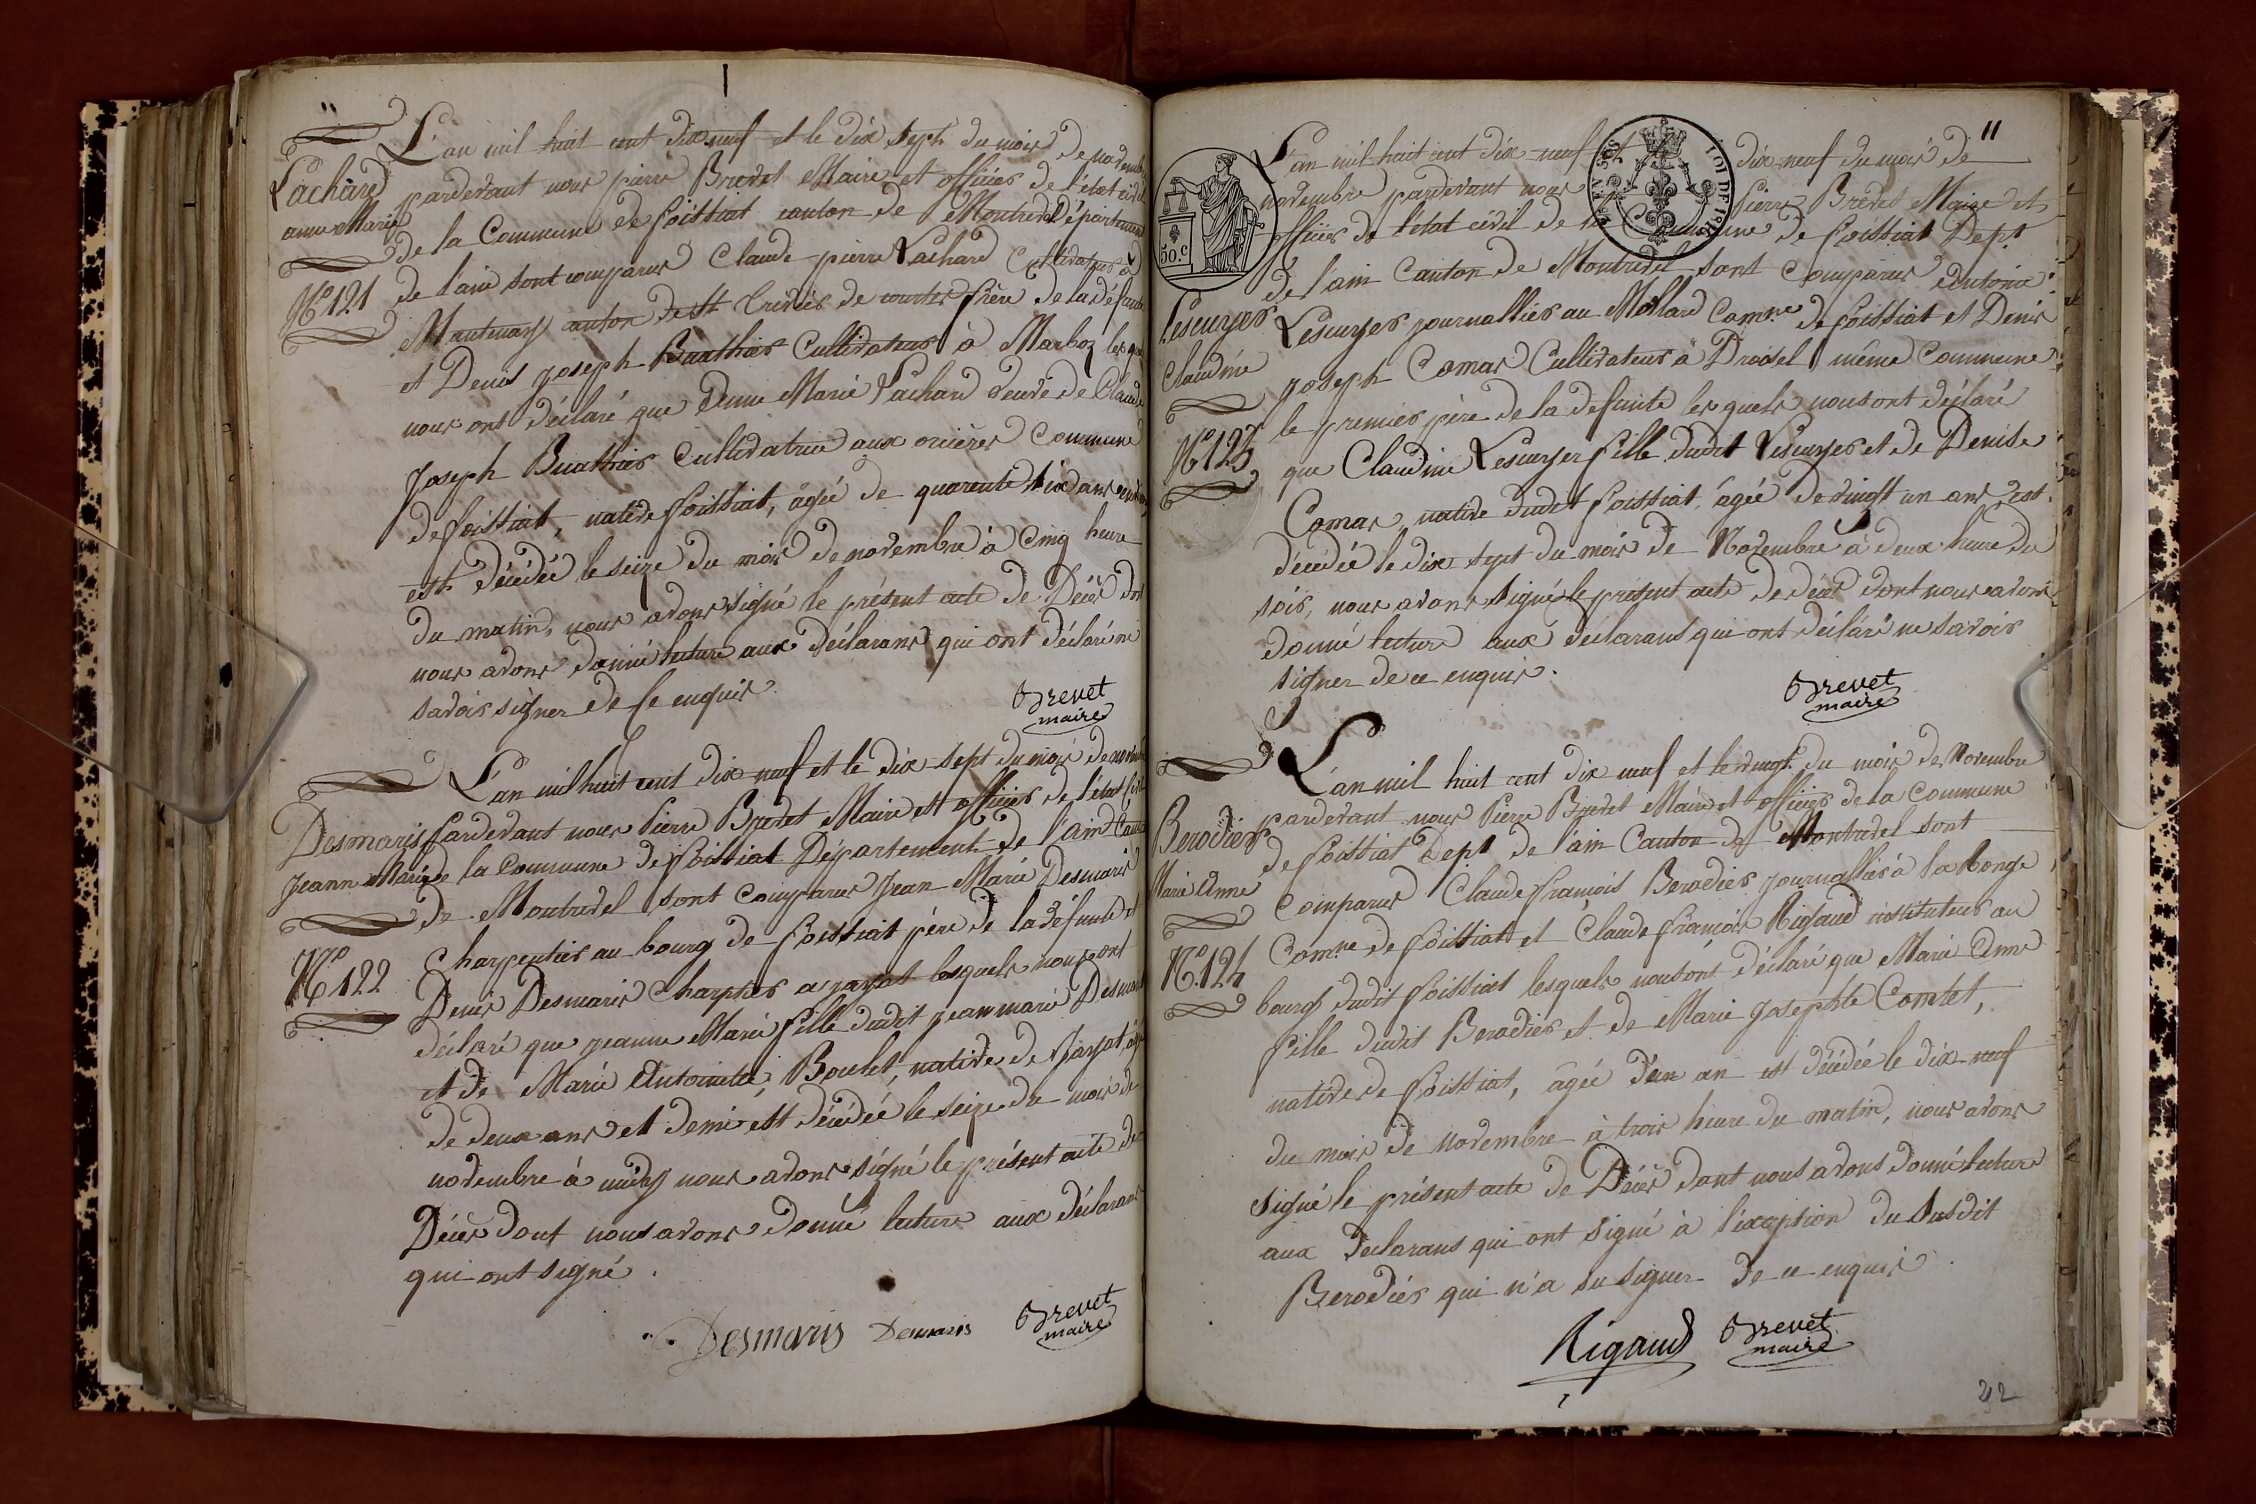 "
L'an mil huit cent dix neuf et le dix sept du mois de novembre
Lachard
anne Marie
N° 121
pardevant nous pierre Brevet Maire et officier de l'état civil
de la Commune de foissiat canton de Montrevel Département
de l'ain sont comparus Claude pierre Lachard Cultivateur à
Mantenay canton de St trivier de courtes frère de la défunte
et Denis Joseph Buathier Cultivateur à Marboz lesquels
nous ont déclaré que Anne Marie Lachard veuve de Claude
Joseph Buathier Cultivatrice aux orcières Commune
de foissiat, native foissiat, âgée de quarente six ans
est décédée le seize du mois de novembre à Cinq heure
du matin, nous avons signé le présent acte de Décès dont
nous avons donné lecture aux déclarans qui ont déclaré ne
savoir signer de ce enquis.
Brevet
maire
L'an mil huit cent dix neuf et le dix sept du mois de novembre
Desmaris
Jeann Marie
N° 122
pardevant nous Pierre Brevet Maire et officier de l'état Civil
de la Commune de foissiat Département de l'ain Canton
de Montrevel sont comparus Jean Marie Desmaris
Charpentier au bourg de foissiat père de la défunte et
Denis Desmaris Charptier a jayat lesquels nous ont
déclaré que jeanne Marie fille dudit jean marie Desmaris
et de Marie Antoinette Boulet, native de Jayat, âgée
de deux ans et demi est décédée le seize du mois de
novembre à midy nous avons signé le présent acte de
Décès dont nous avons donné lecture aux déclarans
qui ont signé.
Desmaris Desmaris Brevet
maire
11
50.c
LOI DE 18
L'an mil huit cent dix neuf et dix neuf du mois de
novembre pardevant nous Pierre Brevet Maire et
officier de l'état civil de la Commune de foissiat Dept
de l'ain Canton de Montrevel sont Comparus Antoine
Lescuyer
Claudine
N° 123
Lescuyer journallier au Mollard Comne de foissiat et Denis
Joseph Comas Cultivateur à Drovel même Commune
le premier père de la defunte lesquels nous ont déclaré
que Claudine Lescuyer fille dudit Lescuyer et de Denise
Comas, native dudit foissiat, âgée de vingt un ans, est
décédée le dix sept du mois de Novembre à deux heure du
soir, nous avons signé le présent acte de décès dont nous avons
donné lecture aux déclarans qui ont déclaré ne savoir
signer de ce enquis.
Brevet
maire
L'an mil huit cent dix neuf et le vingt du mois de Novembre
Berodier
Marie Anne
N° 124
pardevant nous Pierre Brevet Maire et officier de la Commune
de foissiat Dept de l'ain Canton de Montrevel sont
Comparus Claude françois Berodier journallier à la bonge
Comne de foissiat et Claude françois Rigaud instituteur au
bourg dudit foissiat lesquels nous ont déclaré que Marie Anne
fille dudit Berodier et de Marie Josephte Comtet,
native de foissiat, âgée d'un an est décédée le dix neuf
du mois de Novembre à trois heure du matin, nous avons
signé le présent acte de Décès dont nous avons donné lecture
aux déclarans qui ont signé à l'exception du susdit
Berodier qui n'a su signer de ce enquis
Rigaud Brevet
maire